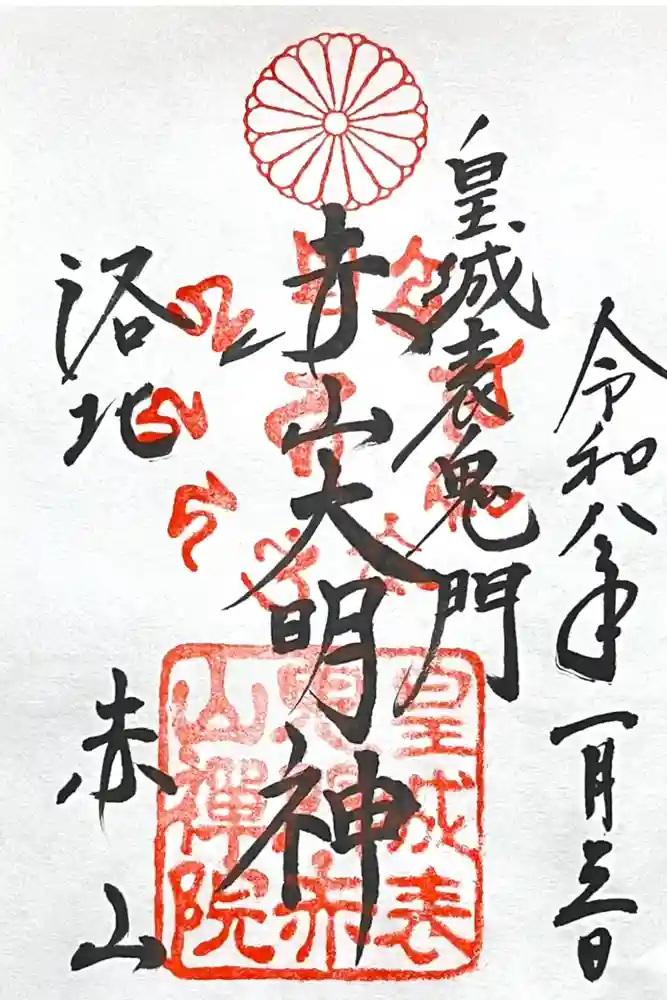 令和八年
一月三日
皇城表鬼門
赤山大明神
洛北
赤山
皇城表
鬼門赤
山禪院